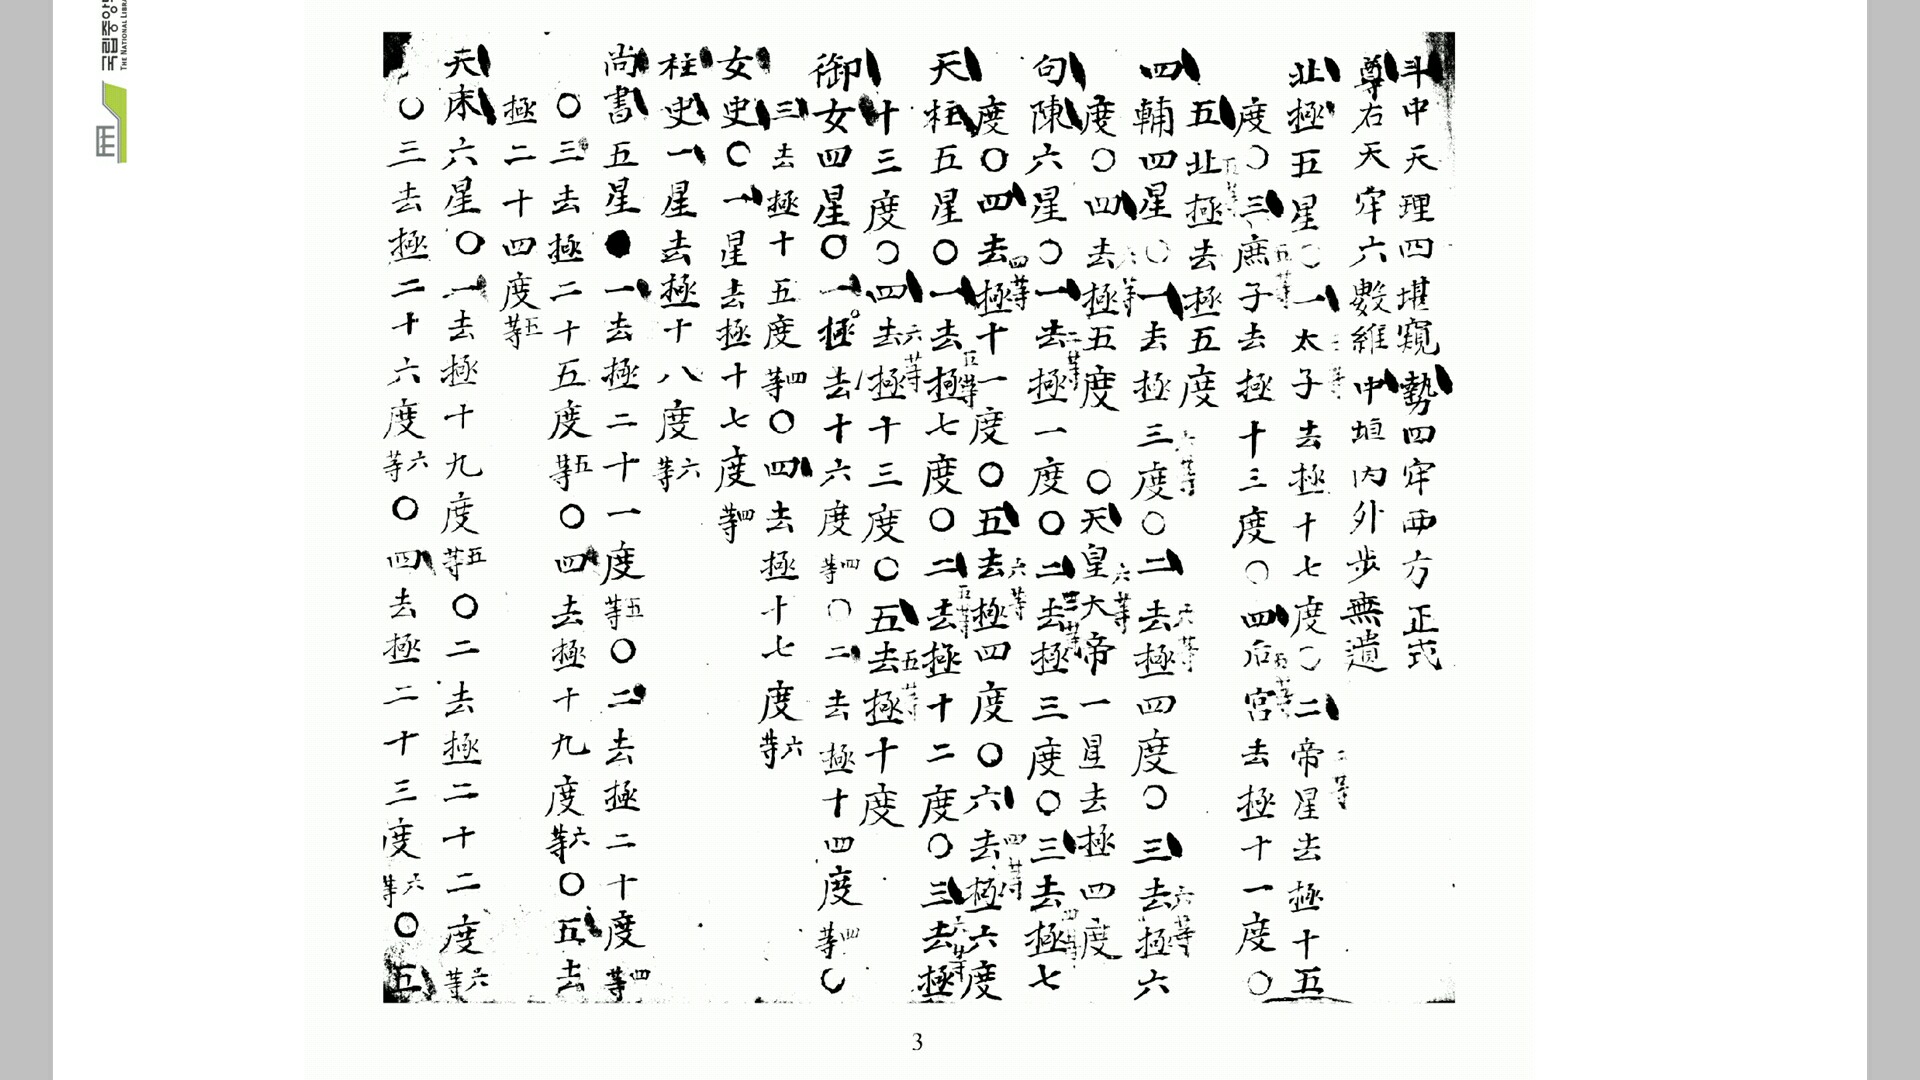 斗中天理四堪窺勢四牢西方正式
尊右天牢六數維中垣內外步無遺
北極五星〇一太子去極十七度三等〇二帝星去極十五
度二等〇三庶子去極十三度五等〇四后宮去極十一度五等〇
五北極去極五度五等
四輔四星〇一去極三度六等〇二去極四度六等〇三去極六
度六等〇四去極五度六等〇天皇大帝一星去極四度六等
句陳六星〇一去極一度二等〇二去極三度三等〇三去極七
度四等〇四去極十一度四等〇五去極四度六等〇六去極六度四等
天柱五星〇一去極七度五等〇二去極十二度五等〇三去極
十三度六等〇四去極十三度六等〇五去極十度五等
御女四星〇一極去十六度四等〇二去極十四度四等〇
三去極十五度四等〇四去極十七度六等
女史〇一星去極十七度四等
柱史一星去極十八度六等
尚書五星●一去極二十一度五等〇二去極二十度四等
〇三去極二十五度五等〇四去極十九度六等〇五去
極二十四度五等
天床六星〇一去極十九度五等〇二去極二十二度六等
〇三去極二十六度六等〇四去極二十三度六等〇五
3